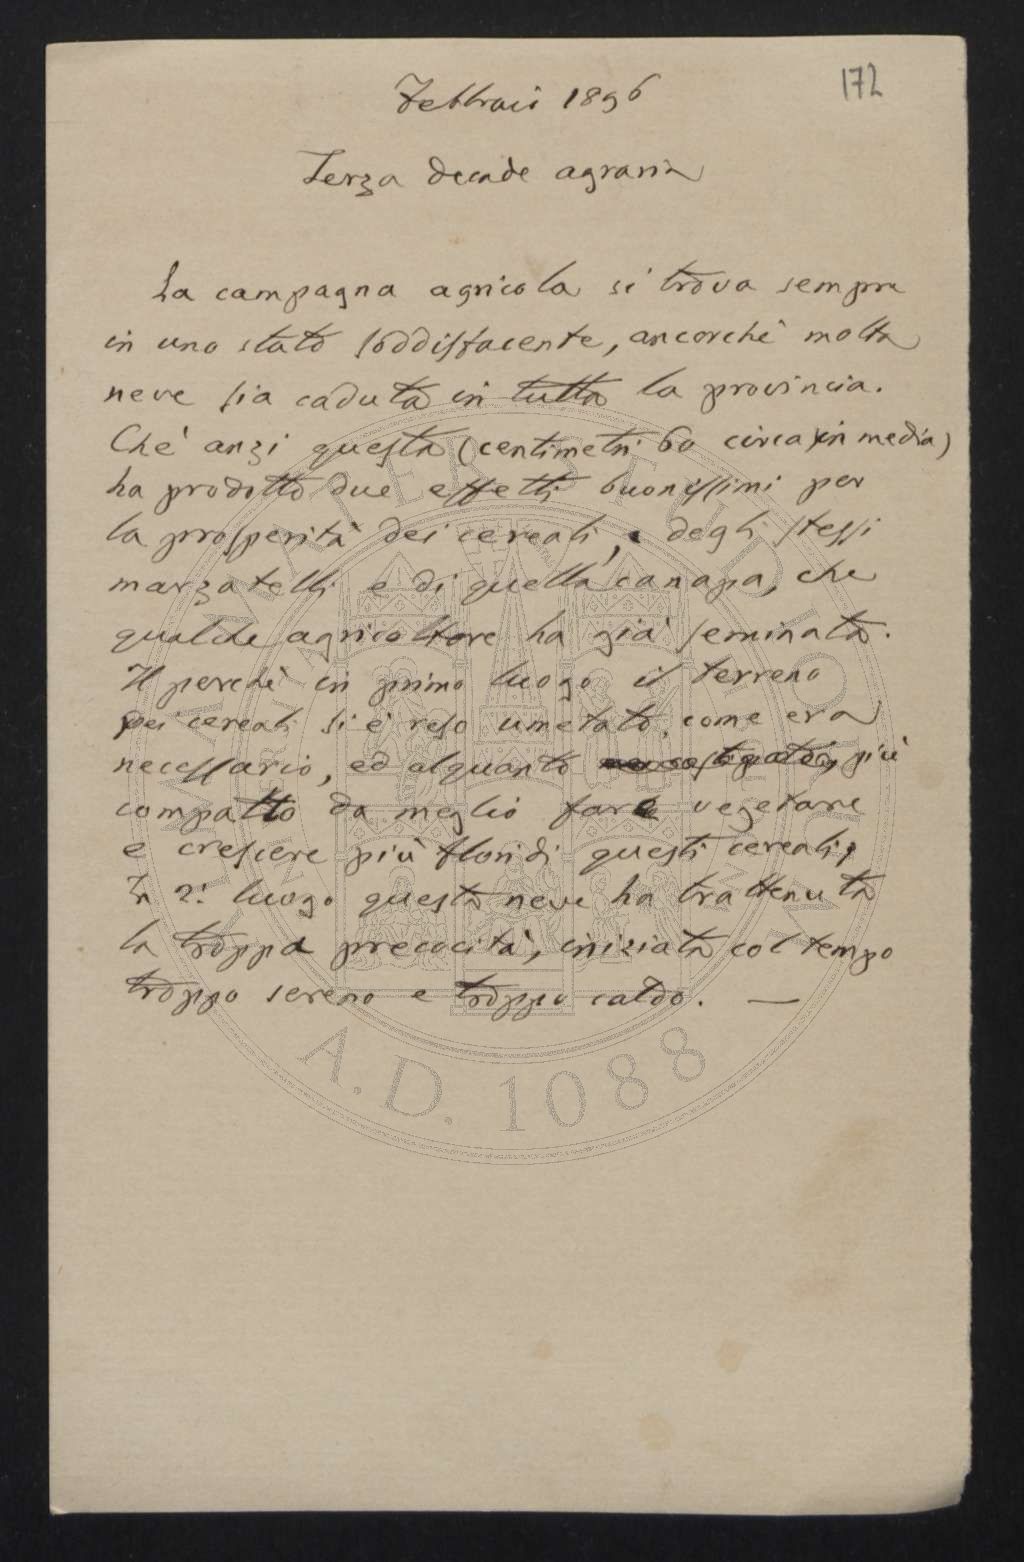 172
Febbraio 1896
Terza decade agraria
La campagna agricola si trova sempre
in uno stato soddisfacente, ancorchè molta
neve sia caduta in tutta la provincia.
Chè anzi questa (centimetri 60 circa in media)
ha prodotto due effetti buonissimi per
la prosperità dei cereali, degli stessi
marzatelli e di quella canapa, che
qualche agricoltore ha già seminata.
Il perchè in primo luogo il terreno
pei cereali si è reso umetato, come era
necessario, ed alquanto più
compatto da meglio fare vegetare
e crescere più floridi questi cereali;
In 2.° luogo questa neve ha trattenuta
la troppa precocità, iniziata col tempo
troppo sereno e troppo caldo. —
ALMA MATER STUDIORUM
A.D. 1088